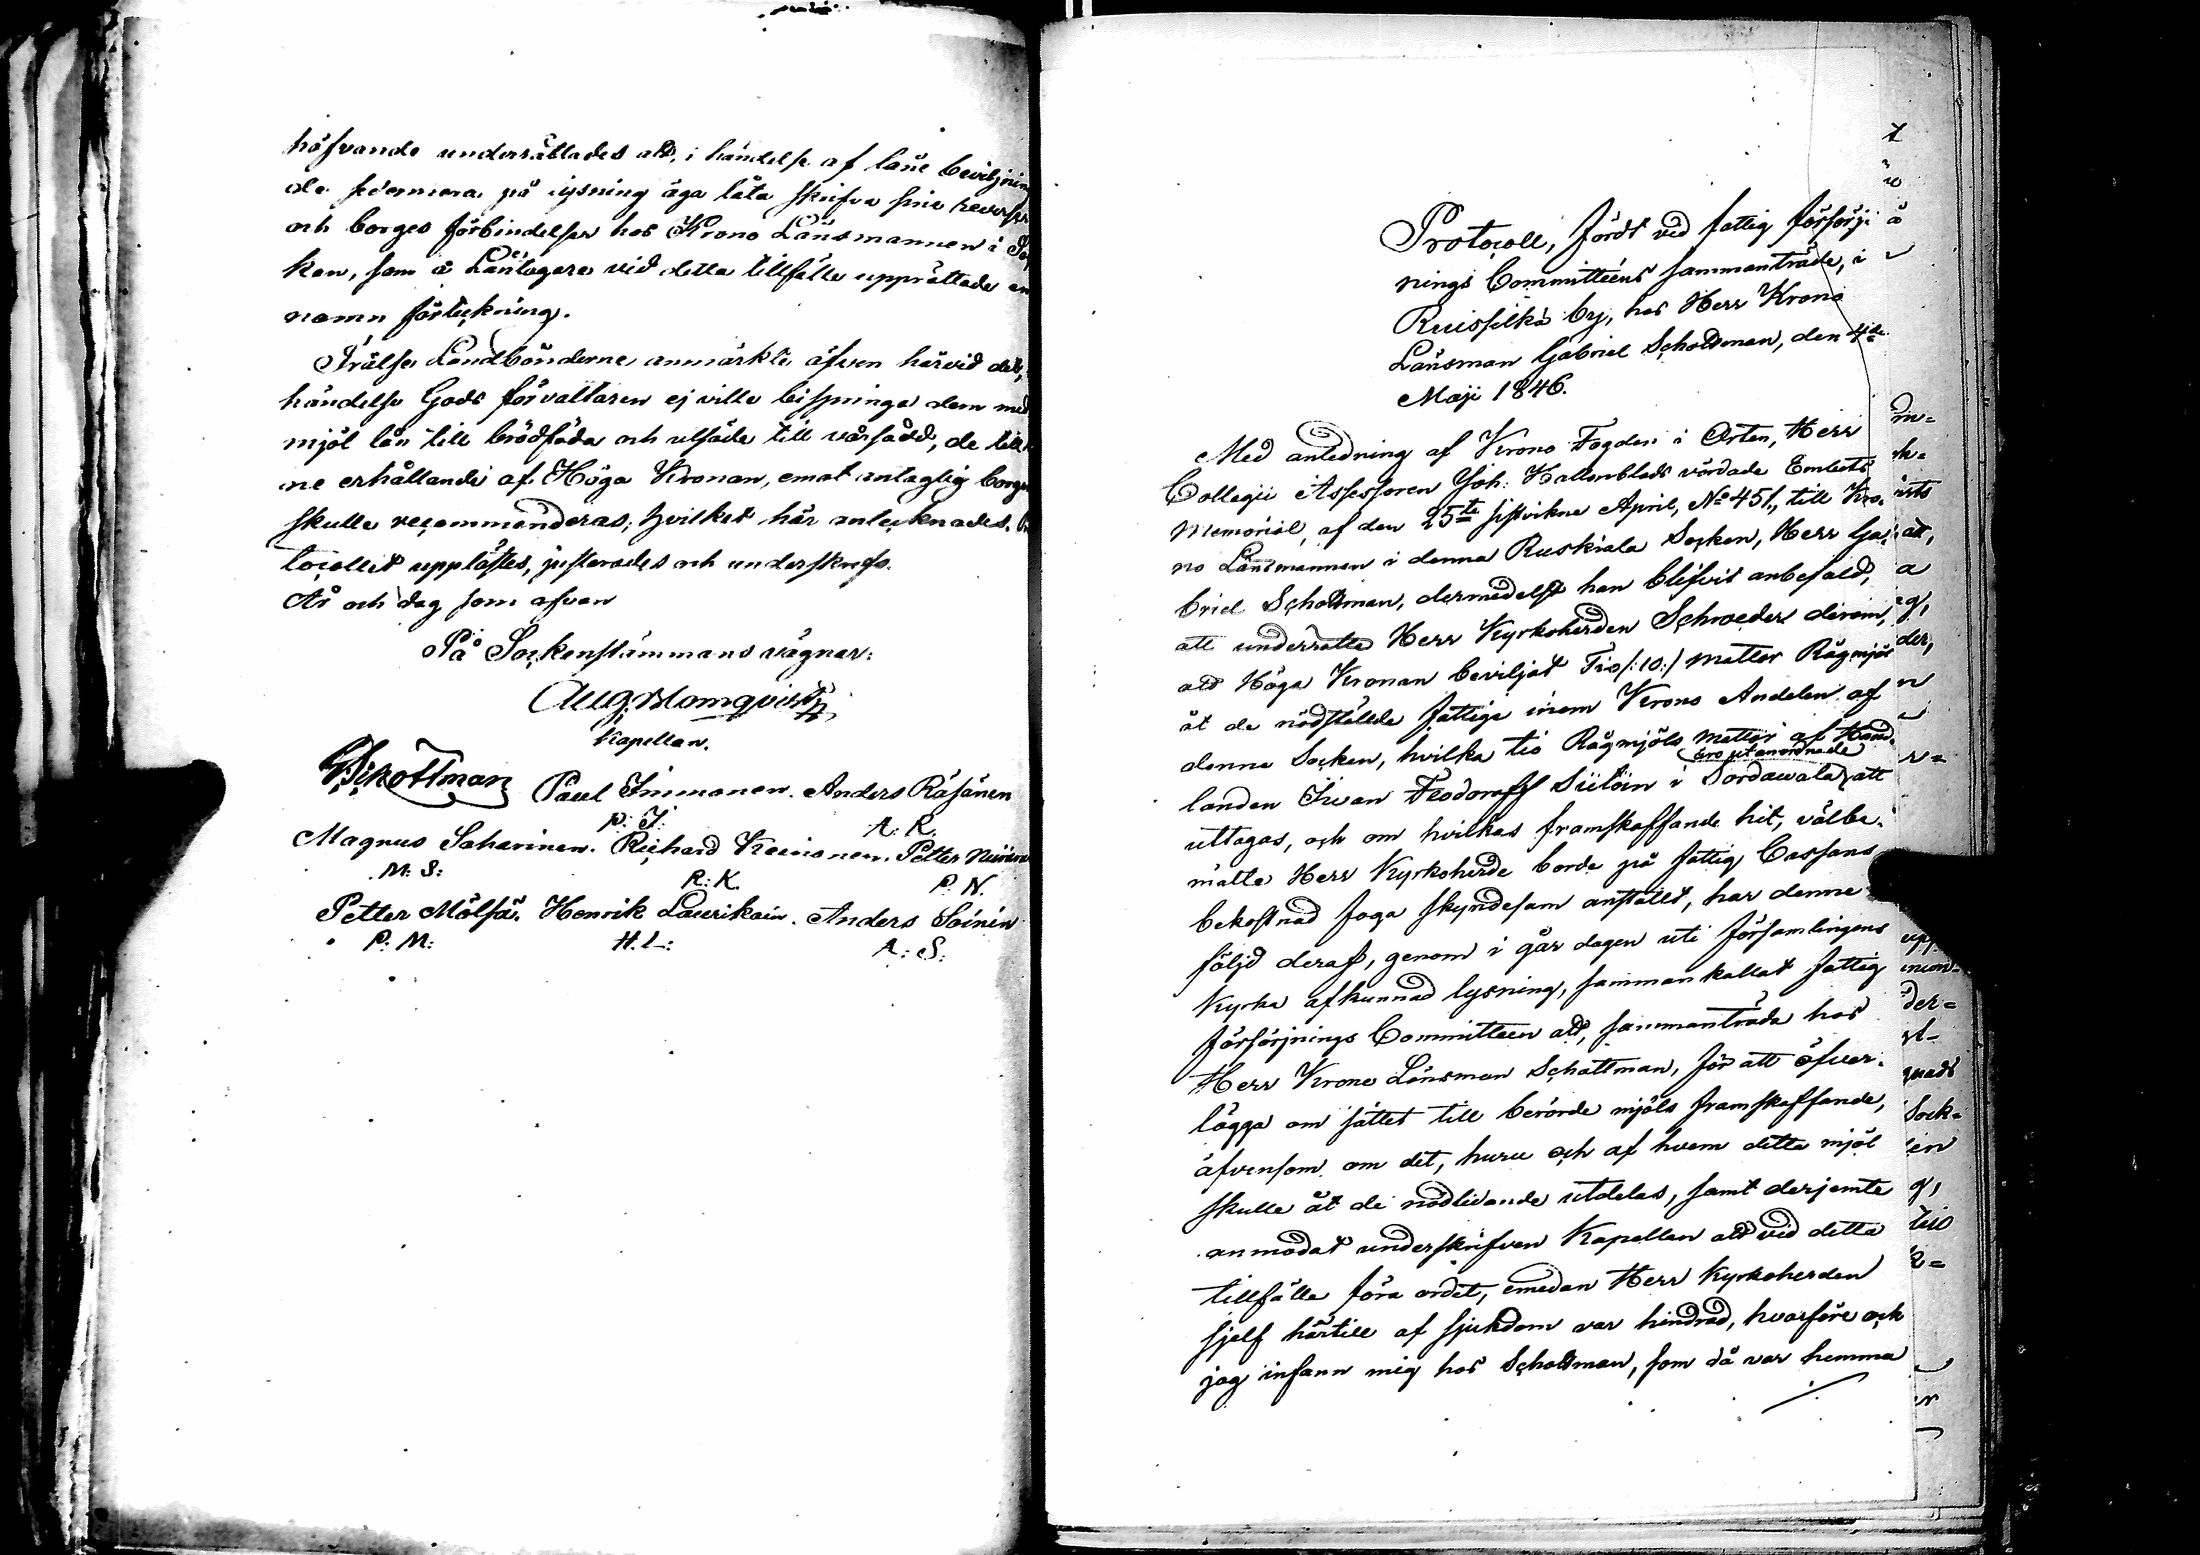 höfvande underrättades att, i händelse af låne beviljnin
de sedermera på lysning äga låta skrifva sine reverser
och borges förbindelser hos Krono Länsmannen i So
ken, som å Låntagare vid detta tillfälle upprättade en
namn förteckning.
Frälse Landbönderne anmärkte äfven härvid det,
händelse Gods förvaltaren ej ville bispringa dem med
mjöl lån till brödföda och utsäde till vårsådd, de till
ne erhållande af Höga Kronan, emot antaglig borgen
skulle recommenderas, hvilket här antecknades.
tocollet upplästes, justerades och underskrefs.
År och dag som ofvan
På Sockenstämmans vägnar:
Aug. Blomqvist
Kapellan.
Schottman Paul Immonen. Anders Räsänen
P: I: A: R.
Magnus Saharinen. Richard Keinonen. Petter
M: S: R: K. P: N.
Petter Mölsä. Henrik Laurikain. Anders Soinin
P: M: H. L: A: S:
Protocoll, fördt vid fattig försörj
nings Committeens sammanträde, i
Ruisselkä by, hos Herr Krono
Länsman Gabriel Schottman, den 4de
Maji 1846.
Med anledning af Krono Fogden i Orten, Herr
Collegii Assessoren Joh: Hallonblads vördade Embets
Memorial, af den 25te sistvikne April, No 451, till Kro-
no Länsmannen i denna Ruskiala Socken, Herr Ga-
briel Schottman, dermedelst han blifvit anbefald,
att underrätta Herr Kyrkoherden Schroeder derom,
att Höga Kronan beviljat Tio /:10:/ mattor Rågmjöl
åt de nödställde fattige inom Krono Andelen af
denna Socken, hvilka tio Rågmjöls mattor af Hand-
äro utanordnade
landen Iwan Feodoroff Siitoin i Sordawala att
uttagas, och om hvilkas framskaffande hit, välbe-
mälte Herr Kyrkoherde borde på fattig Cassans
bekostnad foga skyndesam anstalt, har denne
följd deraf, genom i går dagen uti församlingens
Kyrka afkunnad lysning, sammankallat fattig
försörjnings Committeen att, sammanträda hos
Herr Krono Länsman Schottman, för att öfver-
lägga om sättet till berörde mjöls framskaffande,
äfvensom om det, huru och af hvem detta mjöl
skulle åt de nödlidande utdelas, samt derjemte
anmodat underskrifven Kapellan att vid detta
tillfälle föra ordet, emedan Herr Kyrkoherden
sjelf härtill af sjukdom var hindrad, hvarföre och
jag infann mig hos Schottman, som då var hemma